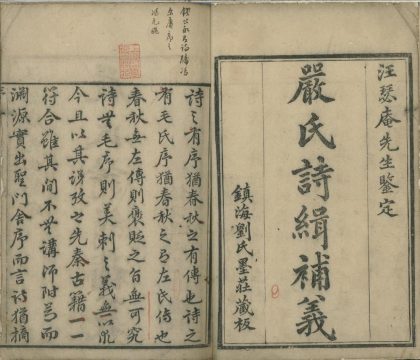 汪瑟庵先生鑒定
嚴氏詩緝補義
鎮海劉氏墨莊藏板
詩之有序猶春秋之有傳也詩之
有毛氏序猶春秋之有左氏傳也
春秋無左傳則褒貶之旨無可究
詩無毛序則美刺之義無以能
今且以其說攷之先秦古籍一一
符合雖其間不無講師附益而
淵源實出聖門舍序而言詩猶摘
序